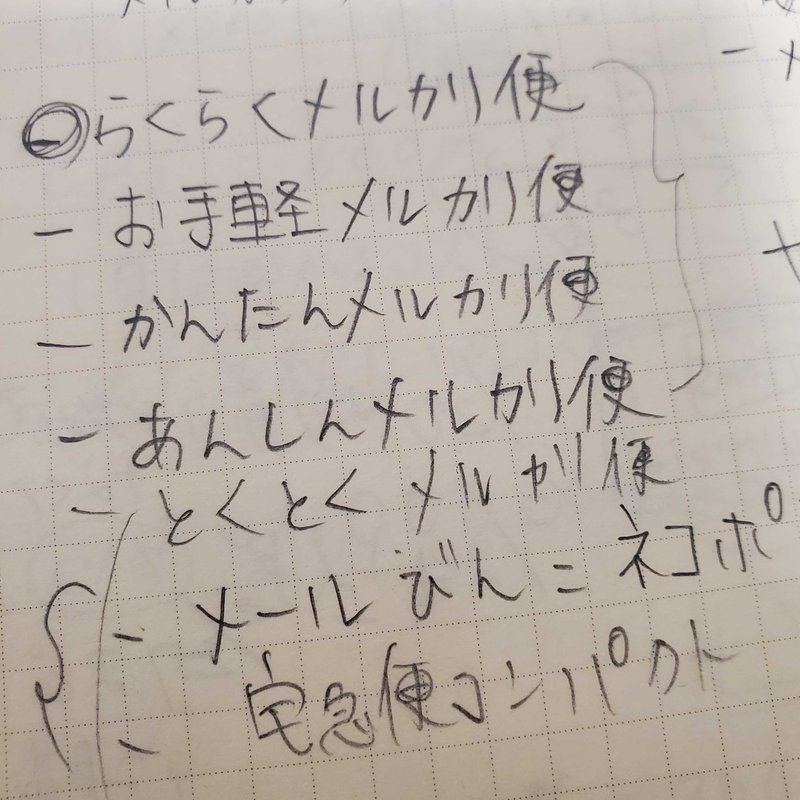 らくらくメルカリ便
- お手軽メルカリ便
- かんたんメルカリ便
- あんしんメルカリ便
- とくとくメルカリ便
- メールびん = ネコポ
- 宅急便コンパクト